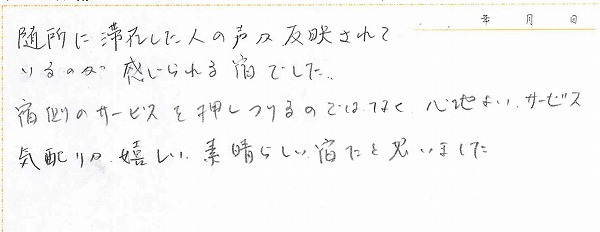 年 月 日
随所に滞在した人の声が反映されて
いるのが感じられる宿でした。
宿側のサービスを押しつけるのではなく、心地よい、サービス
気配りが嬉しい、素晴らしい宿だと思いました